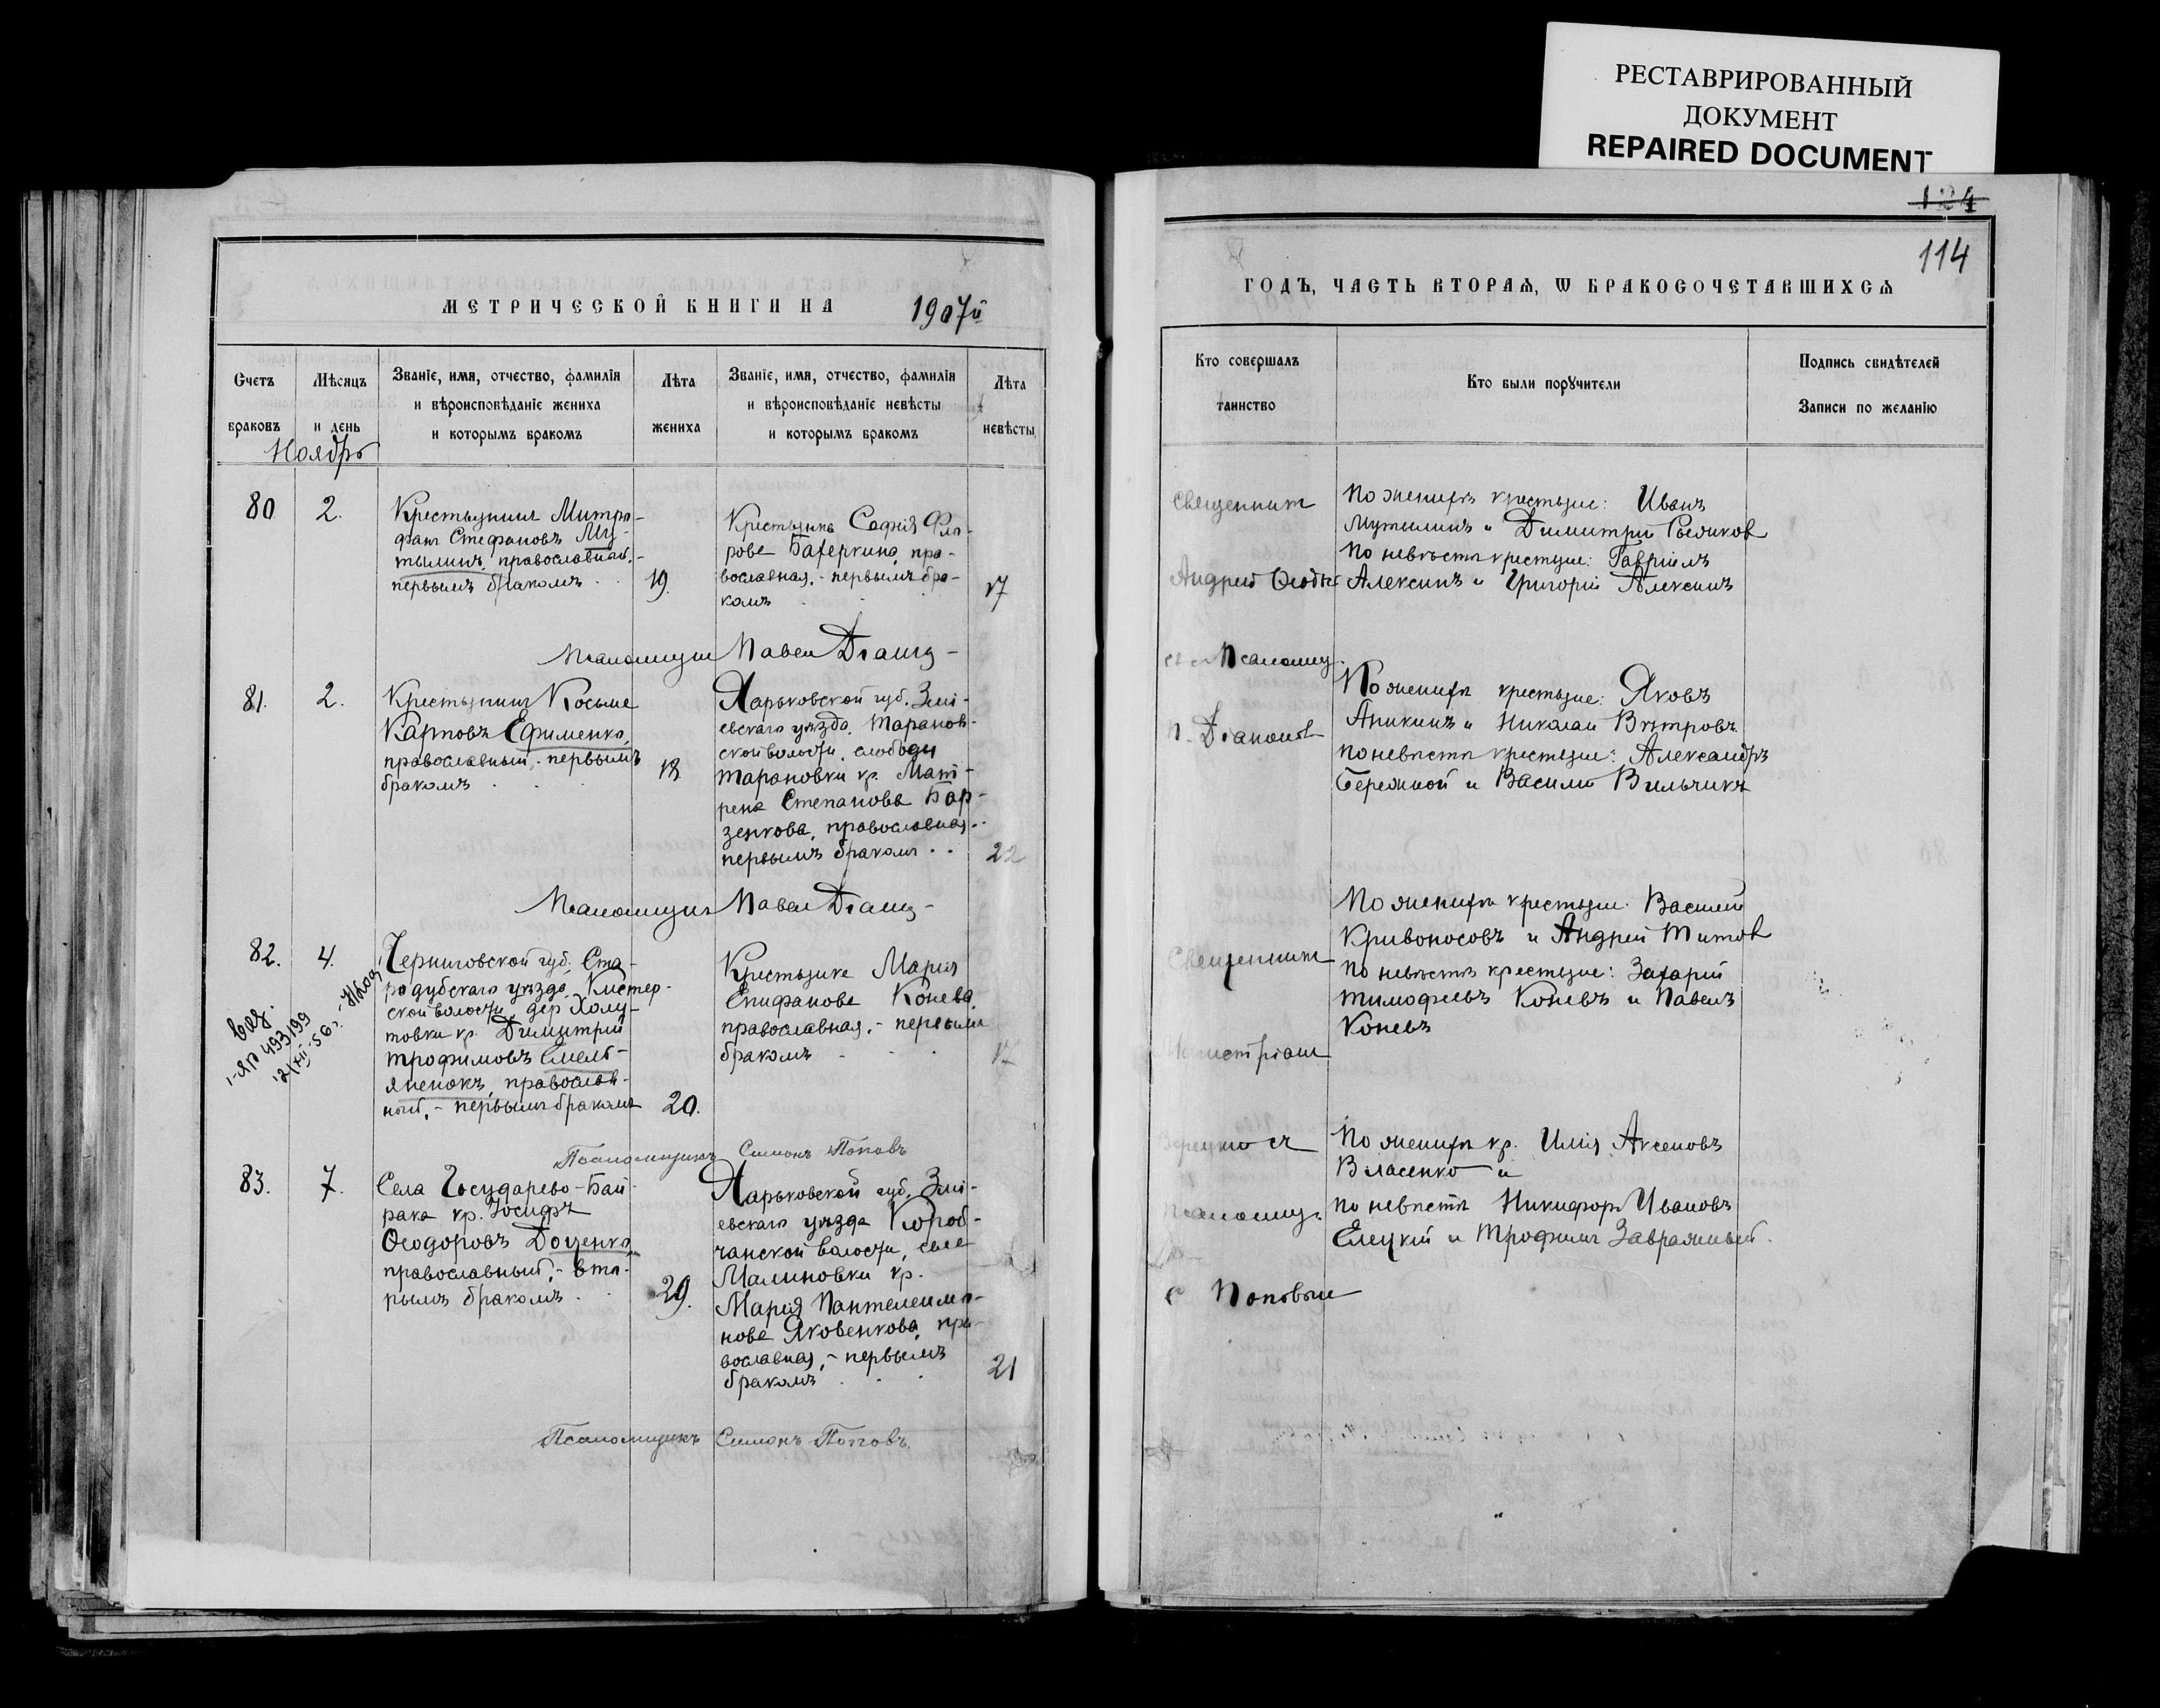 РЕСТАВРИРОВАННЫЙ
ДОКУМЕНТ
REPAIRED DOCUMENT
124
114
МЕТРИЧЕСКОЙ КНИГИ НА 1907й
ГОДЪ, ЧАСТЬ ВТОРАѦ, Ѡ БРАКОСОЧЕТАВШИХСѦ
Счетъ браковъ
Мѣсяцъ и день
Званіе, имя, отчество, фамилія
и вѣроисповѣданіе жениха
и которымъ бракомъ
Лѣта жениха
Званіе, имя, отчество, фамилія
и вѣроисповѣданіе невѣсты
и которымъ бракомъ
Лѣта невѣсты
Кто совершалъ
таинство
Кто были порꙋчители
Подпись свидѣтелей
Записи по желанію
Ноябрь
80
2.
Крестьянинъ Митро-
фанъ Стефановъ Му-
тылинъ, православный,-
первымъ бракомъ
19.
Крестьянка Софія Фло-
рова Бахеркина, пра-
вославная,- первымъ бра-
комъ
17
Священникъ
Андрей
По женихѣ крестьяне: Иванъ
Мутылинъ и Димитрій
По невѣстѣ крестьяне: Гавріилъ
Алексинъ и Григорій Алексинъ
Псаломщикъ Павелъ
81.
2.
Крестьянинъ Косьма
Карповъ Ефименко,
православный,- первымъ
бракомъ
18
Харьковской губ. Змі-
евскаго уѣзда, Таранов-
ской волости, слободы
Тарановки кр. Мат-
рена Степанова Бар-
зенкова, православная,-
первымъ бракомъ
22
Псаломщ.
П. Діаконов
По женихѣ крестьяне: Яковъ
Аникинъ и Николай Вѣтровъ
По невѣстѣ крестьяне: Александръ
Бережной и Василій
Псаломщикъ Павелъ
82.
4.
Черниговской губ. Ста-
родубскаго уѣзда, Кистер-
ской волости, дер. Холу-
товки кр. Димитрій
Трофимовъ Емель-
яненокъ, православ-
ный,- первымъ бракомъ
20.
Крестьянка Марія
Епифанова Конева,
православная,- первымъ
бракомъ
17
Священникъ
По женихѣ крестьяне: Василій
Кривоносовъ и Андрей Титов
По невѣстѣ крестьяне: Захарій
Тимофеевъ Коневъ и Павелъ
Коневъ
Псаломщикъ Симонъ Поповъ
83.
7.
Села Государево-Бай-
рака кр. Іосифъ
Ѳеодоровъ Доценко,
православный,- вто-
рымъ бракомъ
29.
Харьковской губ. Змі-
евскаго уѣзда Короб-
чанской волости, села
Малиновки кр.
Марія Пантелеимо-
нова Яковенкова, пра-
вославная,- первымъ
бракомъ
21
съ
С Поповым
По женихѣ кр. Илія Аксеновъ
Власенко и
по невѣстѣ Никифоръ Ивановъ
Елецкій и Трофимъ Завражный.
Псаломщикъ Симонъ Поповъ.